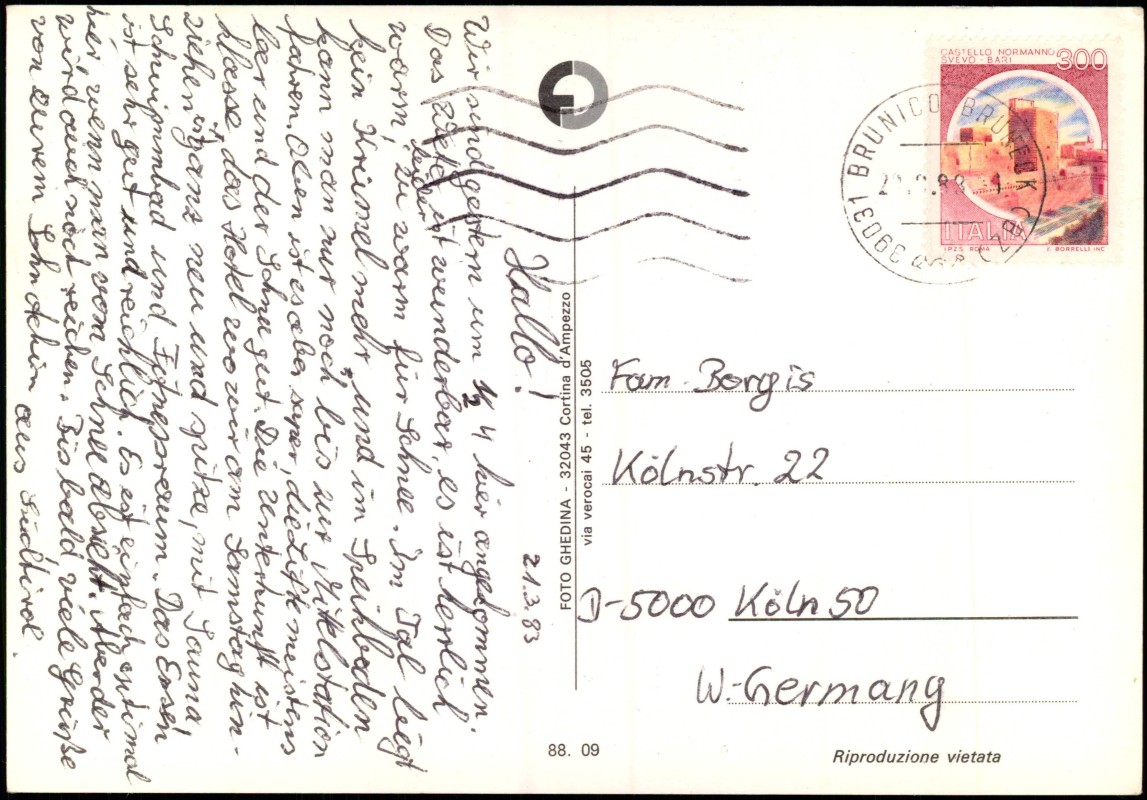 21.3.83
Hallo!
Wir sind gestern um 1/2 4 hier angekommen.
Das Wetter ist wunderbar, es ist herrlich
warm, leider zu warm für Schnee. Im Tal liegt
kein Krümel mehr, und im Speikboden
kann man nur noch bis zur Mittelstation
fahren. Oben ist es aber super, die Lifte meistens
leer und der Schnee gut. Die Unterkunft ist
klasse, das Hotel wo wir am Samstag hin-
ziehen ist ganz neu und spitze, mit Sauna
Schwimmbad und Fitnessraum. Das Essen
ist sehr gut und reichlich. Es ist einfach optimal
hier, wenn man vom Schnee absieht. Aber der
wird auch noch reichen. Bis bald viele Grüße
von Eurem Söhnchen
aus Südtirol.
FOTO GHEDINA - 32043 Cortina d'Ampezzo
via verocai 45 - tel. 3505
CASTELLO NORMANNO
SVEVO - BARI
300
ITALIA
I.P.Z.S. ROMA
E. BORRELLI INC.
39031 BRUNICO BRUNECK (BZ)
Fam. Borgis
Kölnstr. 22
D-5000 Köln 50
W.-Germany
88. 09
Riproduzione vietata